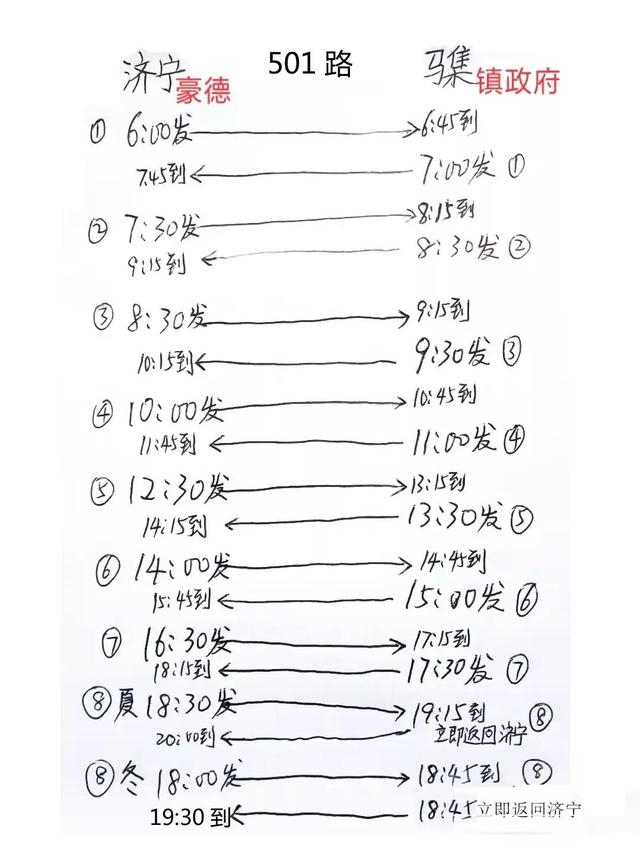 501 路
济宁豪德 马集镇政府
① 6:00发 6:45到
7:45到 7:00发 ①
② 7:30发 8:15到
9:15到 8:30发 ②
③ 8:30发 9:15到
10:15到 9:30发 ③
④ 10:00发 10:45到
11:45到 11:00发 ④
⑤ 12:30发 13:15到
14:15到 13:30发 ⑤
⑥ 14:00发 14:45到
15:45到 15:00发 ⑥
⑦ 16:30发 17:15到
18:15到 17:30发 ⑦
⑧ 夏 18:30发 19:15到 ⑧
20:00到 立即返回济宁
⑧ 冬 18:00发 18:45到 ⑧
19:30 到 18:45 立即返回济宁